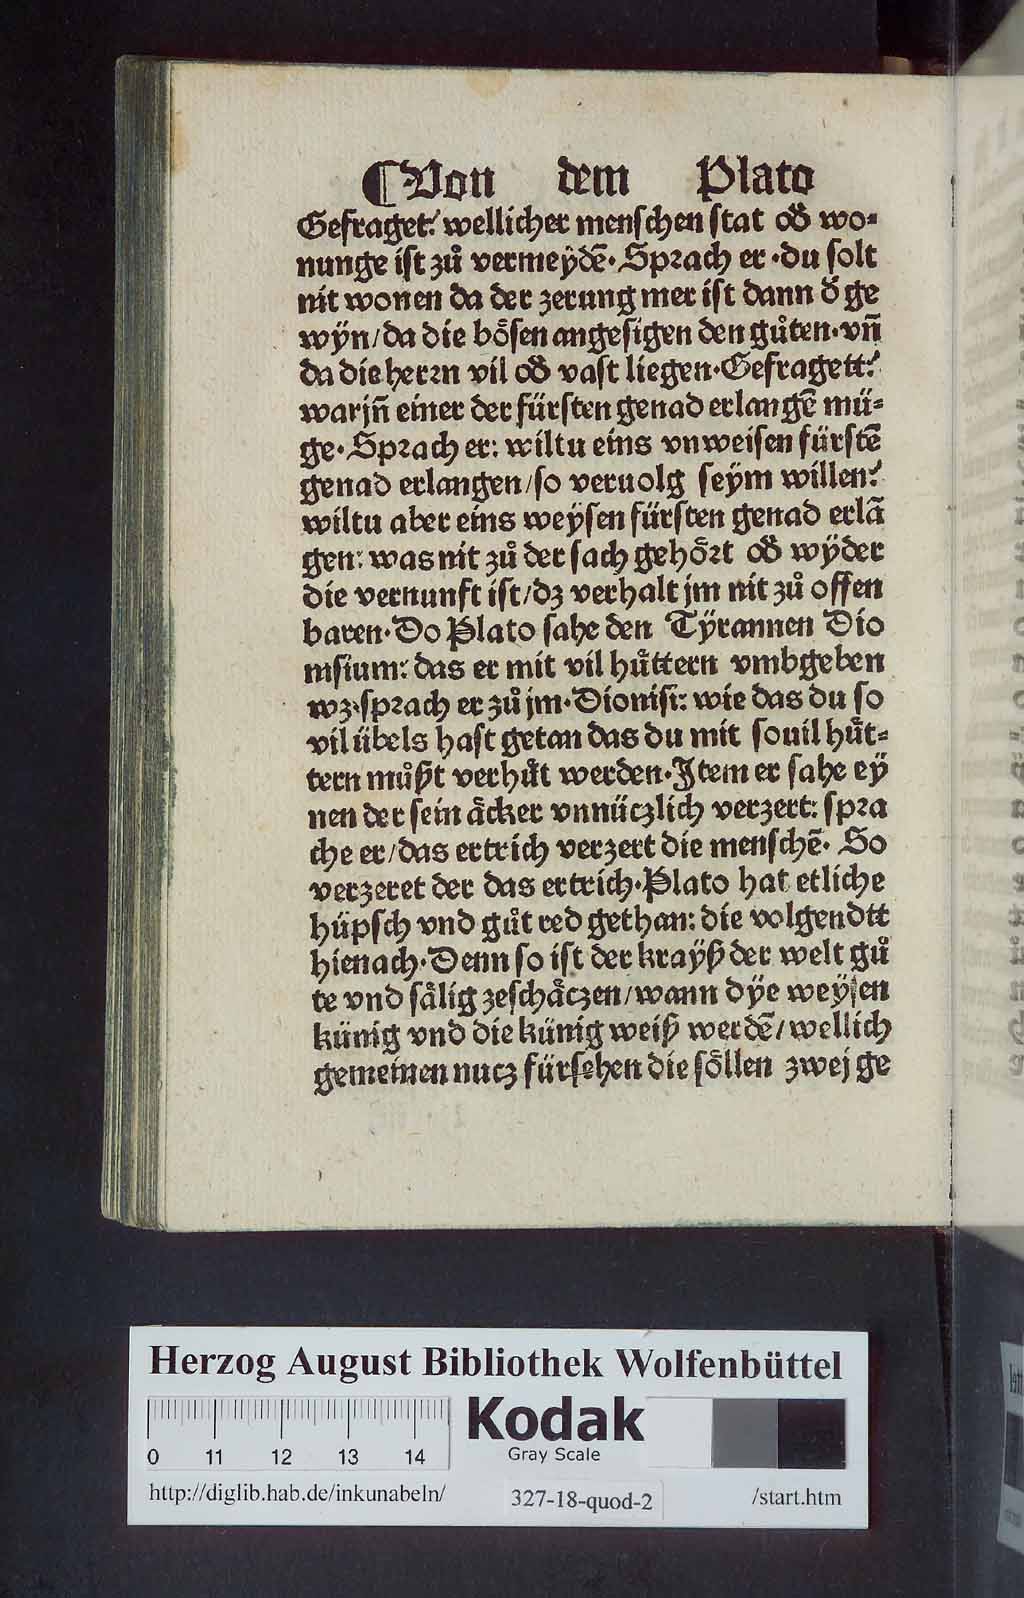 ¶Von dem Plato
Gefraget: wellicher menschen stat od̕ wo⸗
nunge ist zů vermeÿdē· Sprach er ·du solt
nit wonen da der zerung mer ist dann d̕ ge
wÿn/da die bösen angesigen den gůten·vn̄
da die herrn vil od̕ vast liegen·Gefragett:
warjn̄ einer der fürsten genad erlangē mü⸗
ge·Sprach er: wiltu eins vnweisen fürstē
genad erlangen/so veruolg seÿm willen:
wiltu aber eins weÿsen fürsten genad erlā
gen: was nit zů der sach gehört od̕ wÿder
die vernunft ist/dz verhalt jm nit zů offen
baren·Do Plato sahe den Tÿrannen Dio
nisium: das er mit vil hůttern vmbgeben
wz·sprach er zů jm·Dionisi: wie das du so
vil übels hast getan das du mit souil hůt⸗
tern můßt verhůt werden·Item er sahe eÿ
nen der sein äcker vnnüczlich verzert: spra
che er/das ertrich verzert die menschē· So
verzeret der das ertrich·Plato hat etliche
hüpsch vnd gůt red gethan: die volgendtt
hienach·Denn so ist der kraÿß der welt gů
te vnd sälig zeschäczen/wann dÿe weÿsen
künig vnd die künig weiß werdē/wellich
gemeinen nucz fürsehen die söllen zwej ge
Herzog August Bibliothek Wolfenbüttel
Kodak
Gray Scale
0 11 12 13 14
http://diglib.hab.de/inkunabeln/ 327-18-quod-2 /start.htm